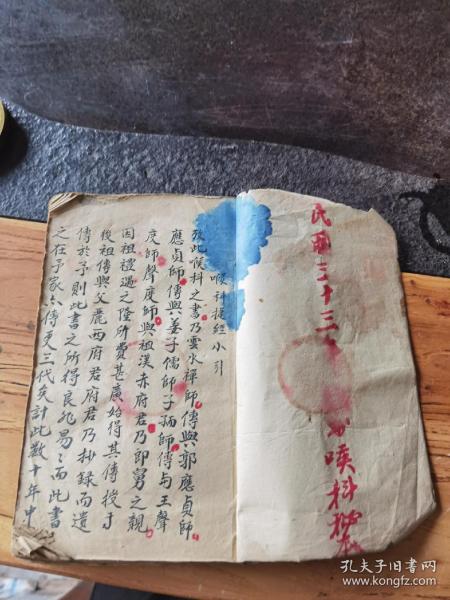 民國三十三
喉科
喉科提經小引
攷此喉科之書乃雲水禪師傳與郭應貞師
應貞師傳與姜子儒師子儒師傳与王聲
度師聲度師與祖漢赤府君乃郎舅之親
因祖禮遇之隆所費甚廣始得其傳授于
後祖傳與父麗西府君府君乃抄錄而遺
傳於予則此書之所得良非易易而此書
之在予家六傳受三代矣計此數十年中
孔夫子旧书网
www.kongfz.com